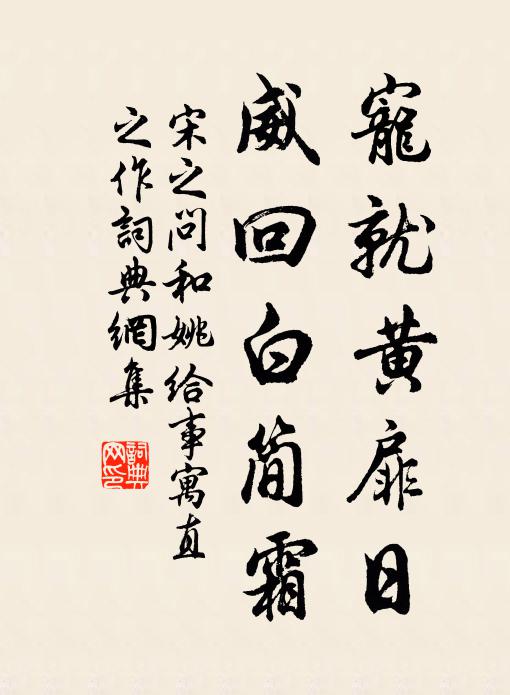 寵就黄扉日
威回白简霜
宋之问和姚给事寓直
之作詞典網集
詞典网印